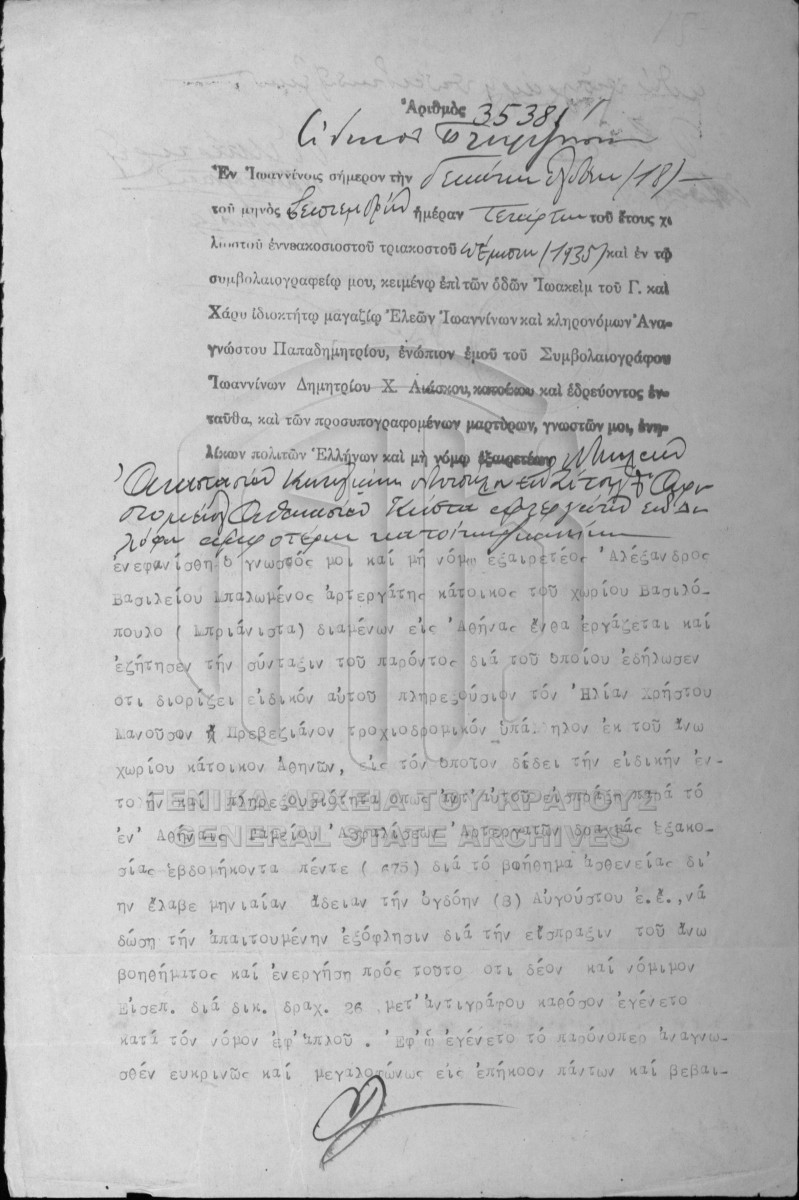 Ἀριθμὸς 35381
Εἰδικὸν Πληρεξούσιον
Ἐν Ἰωαννίνοις σήμερον τὴν δεκάτην ὀγδόην (18)
τοῦ μηνὸς Σεπτεμβρίου ἡμέραν Τετάρτην τοῦ ἔτους χι
λιοστοῦ ἐννεακοσιοστοῦ τριακοστοῦ πέμπτου (1935) καὶ ἐν τῷ
συμβολαιογραφείῳ μου, κειμένῳ ἐπὶ τῶν ὁδῶν Ἰωακεὶμ τοῦ Γ. καὶ
Χάρυ ἰδιοκτήτῳ μαγαζίῳ Ἐλεῶν Ἰωαννίνων καὶ κληρονόμων Ἀνα-
γνώστου Παπαδημητρίου, ἐνώπιον ἐμοῦ τοῦ Συμβολαιογράφου
Ἰωαννίνων Δημητρίου Χ. Λιάσκου, κατοίκου καὶ ἑδρεύοντος ἐν-
ταῦθα, καὶ τῶν προσυπογραφομένων μαρτύρων, γνωστῶν μοι, ἐνη-
λίκων πολιτῶν Ἑλλήνων καὶ μὴ νόμῳ ἐξαιρετέων
Ἀναστασίου
Ἀθανασίου Κώστα
ἀμφοτέρων κατοίκων
ἐνεφανίσθη ὁ γνωστός μοι καί μή νόμῳ ἐξαιρετέος Ἀλέξανδρος
Βασιλείου Μπαλωμένος ἀρτεργάτης κάτοικος τοῦ χωρίου Βασιλό-
πουλο ( Μπριάνιστα) διαμένων εἰς Ἀθήνας ἔνθα ἐργάζεται καί
ἐζήτησεν τήν σύνταξιν τοῦ παρόντος διά τοῦ ὁποίου ἐδήλωσεν
ὅτι διορίζει εἰδικόν αὐτοῦ πληρεξούσιον τόν Ἠλίαν Χρήστου
Μανοῦσον ἤ Πρεβεζιάνον τροχιοδρομικόν ὑπάλληλον ἐκ τοῦ ἄνω
χωρίου κάτοικον Ἀθηνῶν, εἰς τόν ὁποῖον δίδει τήν εἰδικήν ἐν-
τολήν καί πληρεξουσιότητα ὅπως ἀντ' αὐτοῦ εἰσπράξῃ παρά τό
ἐν Ἀθήναις Ταμείου Ἀσφαλίσεως Ἀρτεργατῶν δραχμάς ἑξακο-
σίας ἑβδομήκοντα πέντε ( 675) διά τό βοήθημα ἀσθενείας δι'
ην ἔλαβε μηνιαίαν ἄδειαν τήν ὀγδόην (8) Αὐγούστου ἐ.ἔ.,νά
δώσῃ τήν ἀπαιτουμένην ἐξόφλησιν διά τήν εἴσπραξιν τοῦ ἄνω
βοηθήματος καί ἐνεργήσῃ πρός τοῦτο ὅτι δέον καί νόμιμον
Εἰσεπ. διά δικ. δραχ. 26 μετ'ἀντιγράφου καθόσον ἐγένετο
κατά τόν νόμον ἐφ'ἁπλοῦ . Ἐφ'ᾧ ἐγένετο τό παρόνοπερ ἀναγνω-
σθέν εὐκρινῶς καί μεγαλοφώνως εἰς ἐπήκοον πάντων καί βεβαι-
ΓΕΝΙΚΑ ΑΡΧΕΙΑ ΤΟΥ ΚΡΑΤΟΥΣ
GENERAL STATE ARCHIVES